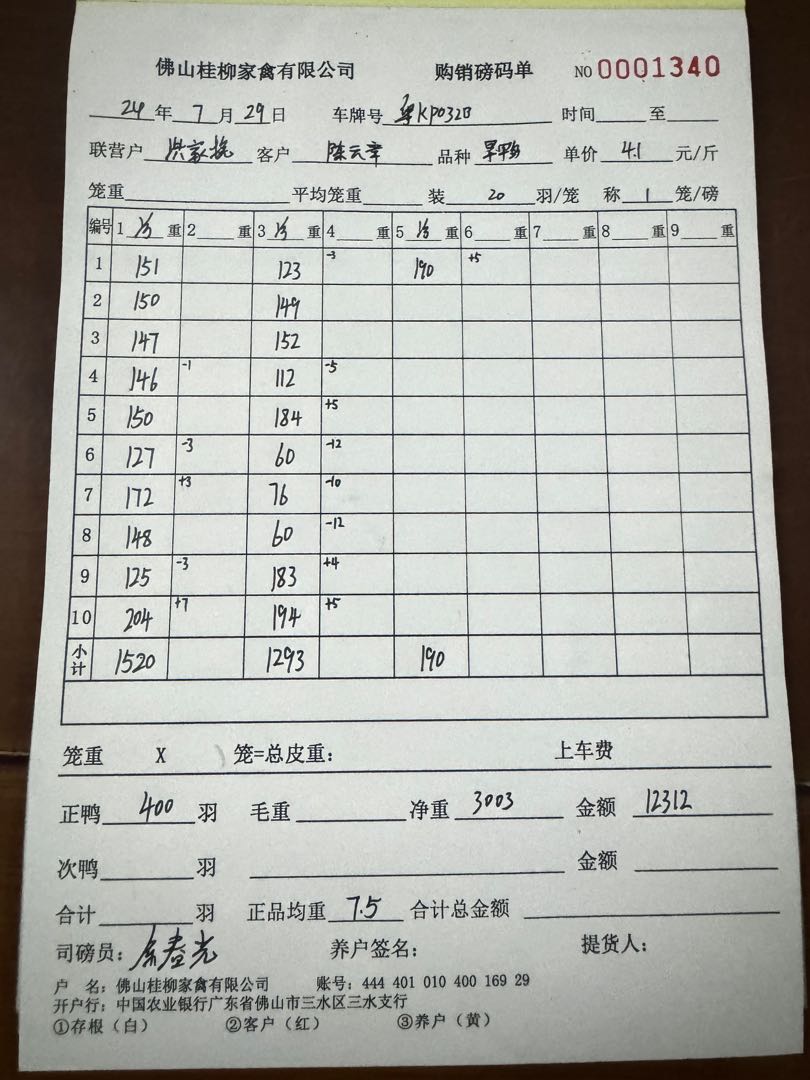 佛山桂柳家禽有限公司 购销磅码单 NO 0001340
24 年 7 月 29 日 车牌号 粤KP032B 时间 至
联营户 洪家 客户 陈云章 品种 旱鸭 单价 4.1 元/斤
笼重 平均笼重 装 20 羽/笼 称 1 笼/磅
编号 1 重 2 重 3 重 4 重 5 重 6 重 7 重 8 重 9 重
1 151 123 -3 190 +5
2 150 149
3 147 152
4 146 -1 112 -5
5 150 184 +5
6 127 -3 60 -12
7 172 +3 76 -10
8 148 60 -12
9 125 -3 183 +4
10 204 +7 194 +5
小计 1520 1293 190
笼重 X 笼=总皮重: 上车费
正鸭 400 羽 毛重 净重 3003 金额 12312
次鸭 羽 金额
合计 羽 正品均重 7.5 合计总金额
司磅员: 养户签名: 提货人:
户 名: 佛山桂柳家禽有限公司 账号: 444 401 010 400 169 29
开户行: 中国农业银行广东省佛山市三水区三水支行
①存根(白) ②客户(红) ③养户(黄)